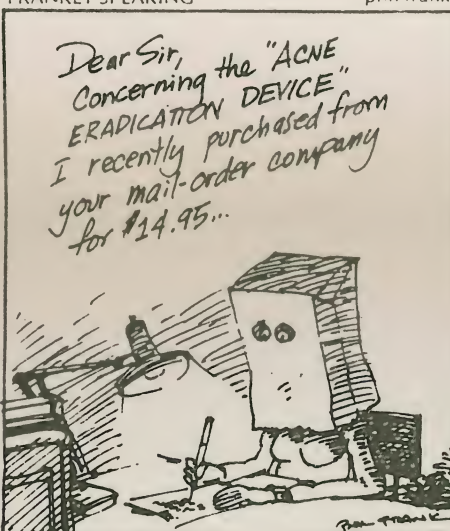 FRANKLY SPEAKING phil frank
Dear Sir,
Concerning the "ACNE
ERADICATION DEVICE"
I recently purchased from
your mail-order company
for $14.95...
PHIL FRANK